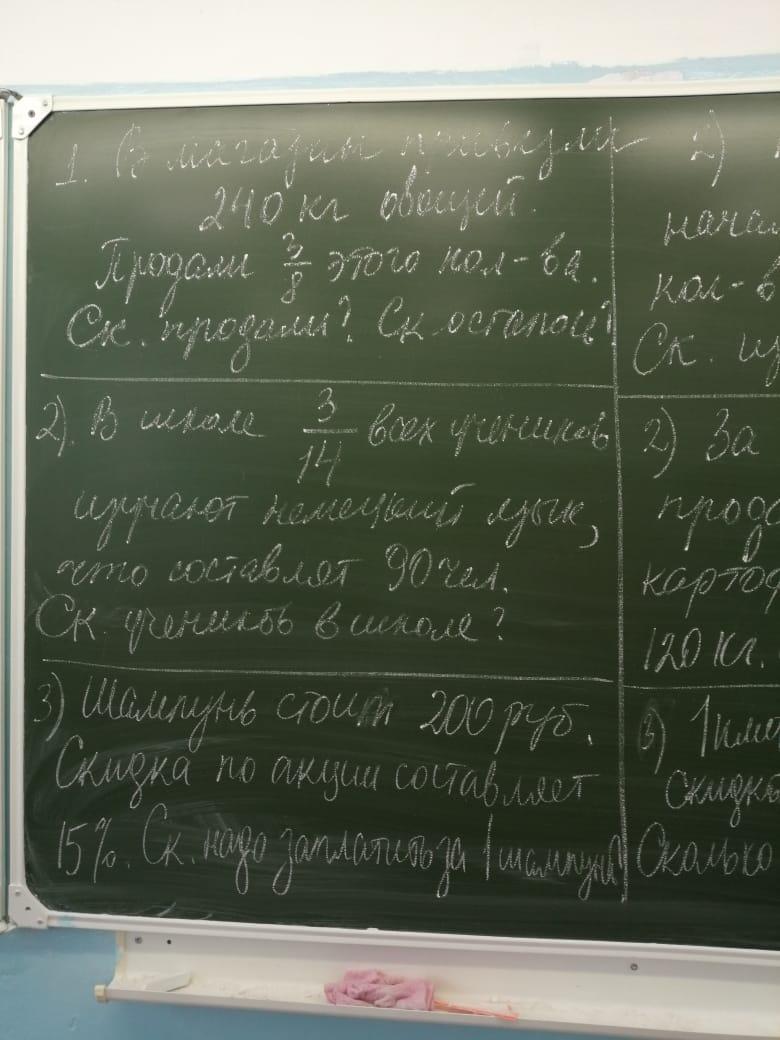 1. В магазин привезли
240 кг овощей.
Продали 3/8 этого кол-ва.
Ск. продали? Ск осталось?
2). В школе 3/14 всех учеников
изучают немецкий язык,
что составляет 90 чел.
Ск. учеников в школе?
3) Шампунь стоит 200 руб.
Скидка по акции составляет
15%. Ск. надо заплатить за 1 шампунь?
2)
начал
кол-в
Ск.
2) За
прода
картоф
120 кг.
3) 1
скидка
Сколько